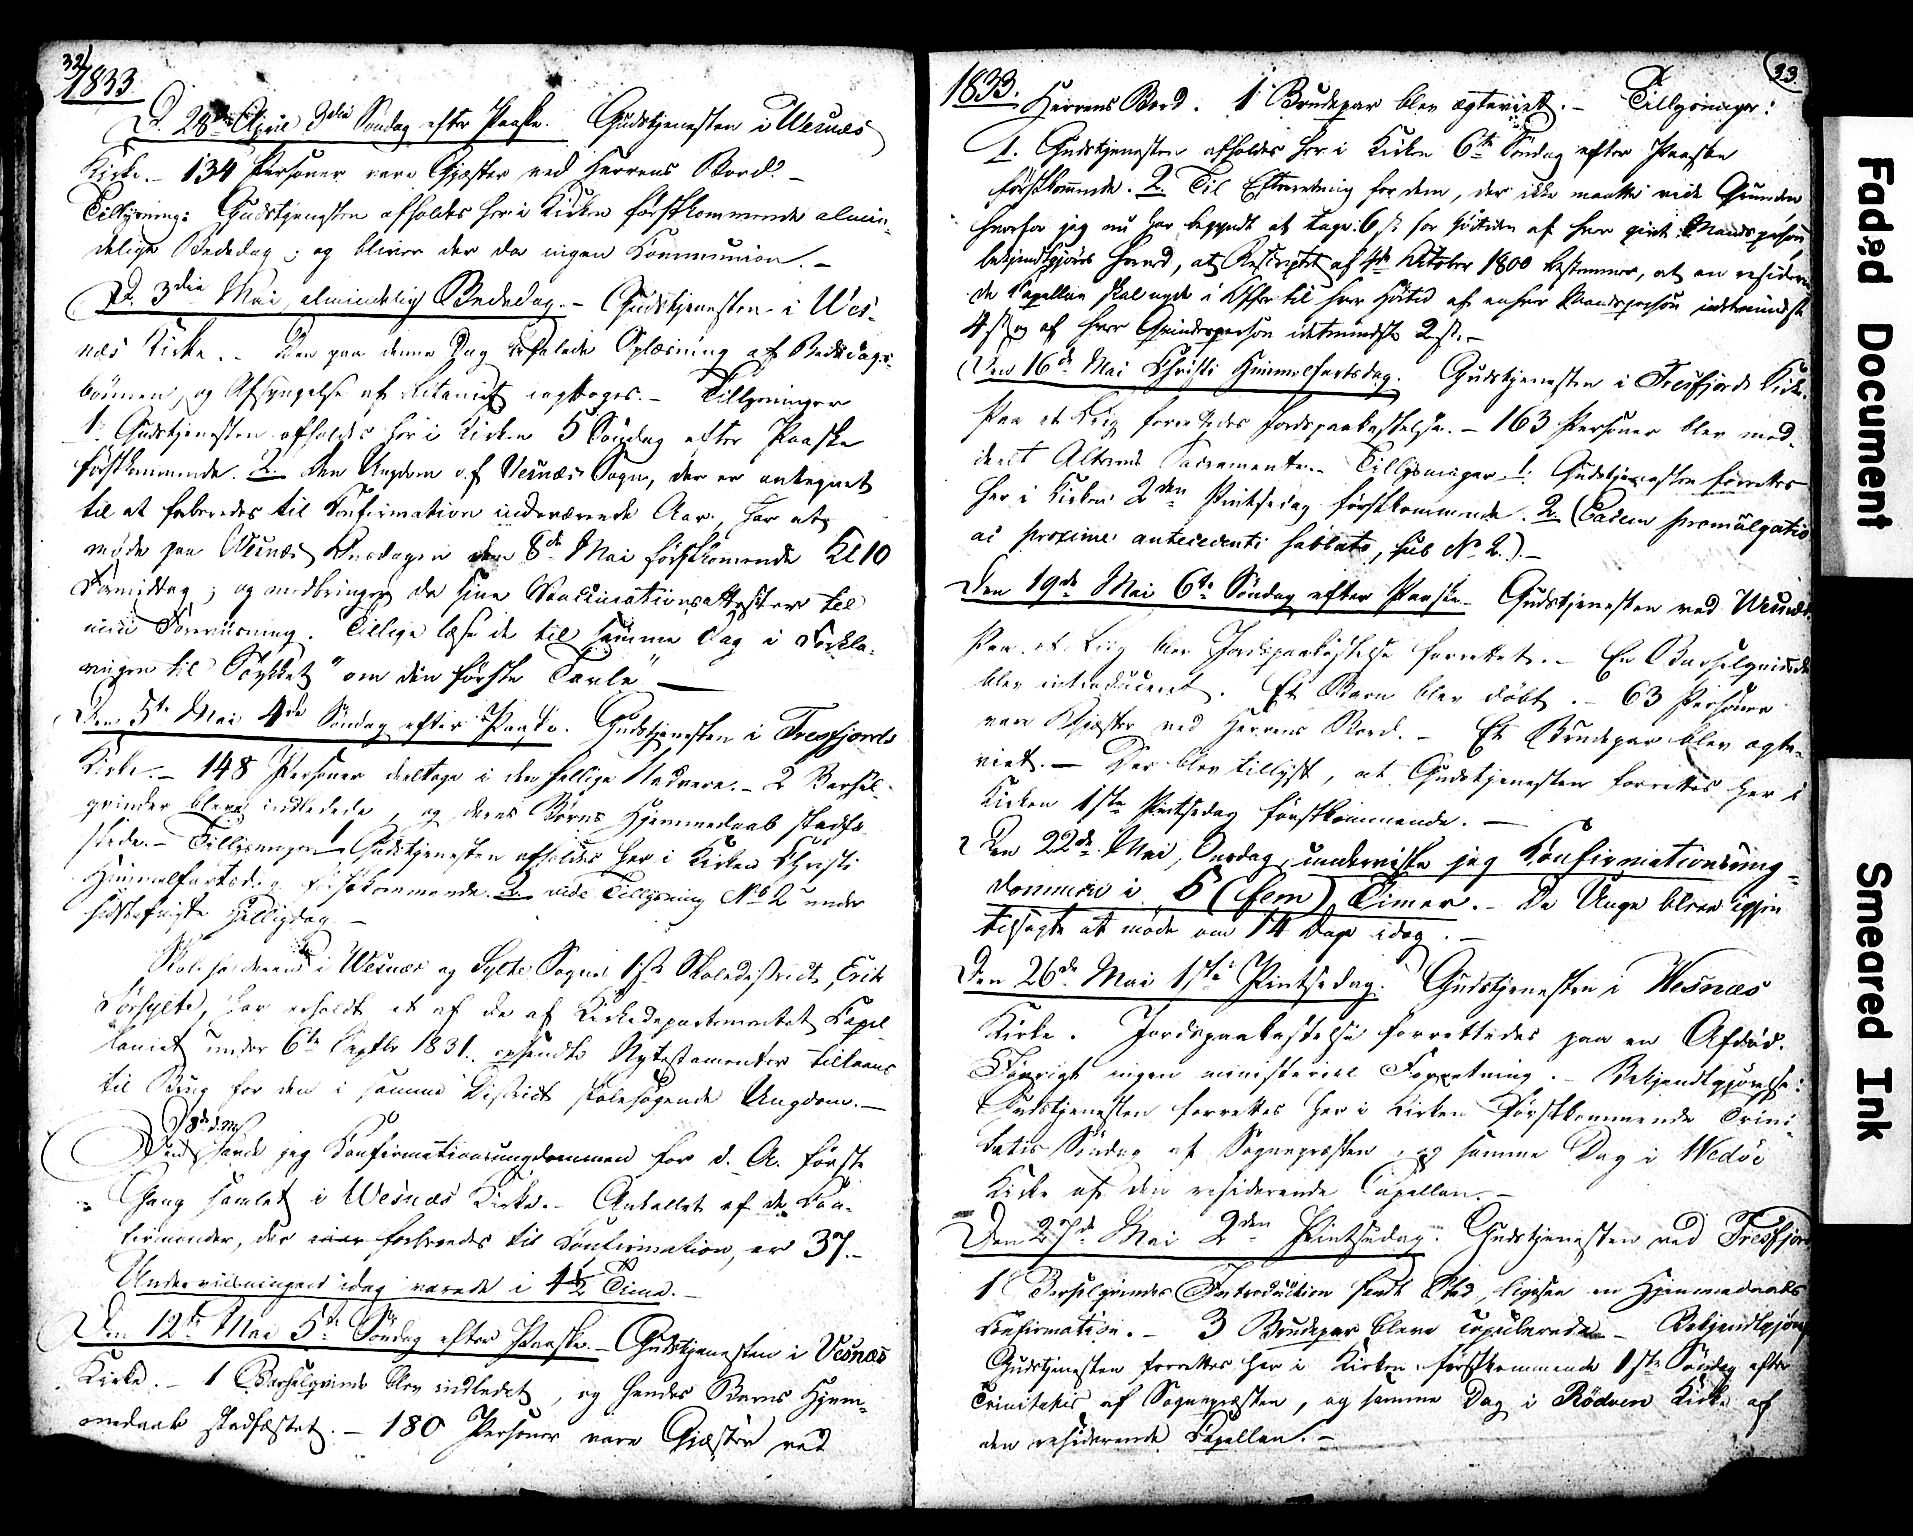 32
1833
D. 28de April 3die Søndag efter Paaske. Gudstjenesten i Wesnæs
Kirke. – 134 Personer vare Gjæster ved Herrens Bord. –
Tillysning: Gudstjenesten afholdes her i Kirken førstkommende almin-
delige Bededag; og bliver der da ingen Communion. –
D. 3die Mai, almindelig Bededag. – Gudstjenesten i Wes-
næs Kirke. – Den paa denne Dag befalede Oplæsning af Bededags-
bønnen, og Afsyngelse af Litaniet iagttoges. – Tillysninger
1. Gudstjenesten afholdes her i Kirken 5 Søndag efter Paaske
førstkommende. 2. Den Ungdom af Vesnæs Sogn, der er antegnet
til at forberedes til Confirmation indeværende Aar, har at
møde paa Wesnæs Onsdagen den 8de Mai førstkommende Kl 10
Formiddag; og medbringer de sine Vaccinationsattester til
min Foreviisning. Tillige læse de til samme Dag i Forkla-
ringen til Stykket "om den første Tavle" –
Den 5te Mai 4de Søndag efter Paaske. Gudstjenesten i Tresfjords
Kirke. – 148 Personer deeltoge i den hellige Nadvere. – 2 Barsel-
qvinder bleve indledede, og deres Børns Hjemmedaab stadfæ-
stede. – Tillysninger 1. Gudstjenesten afholdes her i Kirken Christi
Himmelfartsdag førstkommende. 2. vide Tillysning No 2 under
sidstafvigte Helligdag –
Skoleholderen i Wesnæs og Sylte Sognes 1ste Skoledistrict, Erik
Sørsylte, har erholdt et af de af Kirkedepartementet
under 6te Septbr 1831. opsendte Nytestamenter tillaans
til Brug for den i samme District skolesøgende Ungdom. –
8de d. M.
Den havde jeg Confirmationsungdommen for d. A. første
Gang samlet i Wesnæs Kirke. – Antallet af de Con-
firmander, der forberedes til Confirmation, er 37. –
Underviisningen idag varede i 4½ Time. –
Den 12te Mai 5te Søndag efter Paaske. – Gudstjenesten i Vesnæs
Kirke. – 1 Barselqvinde blev indledet, og hendes Barns Hjem-
medaab stadfæstet. – 180 Personer vare Gjæster ved
33
1833.
Herrens Bord. 1 Brudepar blev ægteviet. – Tillysninger:
1. Gudstjenesten afholdes her i Kirken 6te Søndag efter Paaske
førstkommende. 2. Til Efterretning for dem, der ikke maatte vide Grunden
hvorfor jeg nu har begyndt at tage 6 ß for Høitiden af hver gift Mandsperson
bekjendtgjøres herved, at Rescriptet af 4de October 1800 bestemmer, at en residere-
de Capellan skal nyde i Offer til hver Høitid af enhver Mandsperson idetmindste
4 ß og af hver Qvindeperson idetmindste 2 ß. –
Den 16de Mai Christi Himmelfartsdag. Gudstjenesten i Tresfjords Kirke.
Paa et Liig forrettedes Jordspaakastelse. – 163 Personer blev med-
deelt Alterens Sacramente. – Tillysninger 1. Gudstjenesten forrettes
her i Kirken 2den Pintsedag førstkommende. 2. (Eadem promulgatio
ac proxime antecedenti sabbato, sub No 2.) –
Den 19de Mai 6te Søndag efter Paaske. Gudstjenesten ved Wesnæs.
Paa et Liig blev Jordspaakastelse forrettet. – En Barselqvinde
blev introduceret. Et Barn blev døbt. – 63 Personer
vare Gjæster ved Herrens Bord. – Et Brudepar blev ægte-
viet. – Der blev tillyst, at Gudstjenesten forrettes her i
Kirken 1ste Pintsedag førstkommende. –
Den 22de Mai, Onsdag, underviste jeg Confirmationsung-
dommen i 5 (fem) Timer. – De Unge bleve igjen
tilsagte at møde om 14 Dage idag. –
Den 26de Mai 1ste Pintsedag. Gudstjenesten i Wesnæs
Kirke. Jordspaakastelse forrettedes paa en Afdød.
Forøvrigt ingen ministeriel Forretning. – Bekjendtgjørelse:
Gudstjenesten forrettes her i Kirken førstkommende Trini-
tatis Søndag af Sognepræsten, og samme Dag i Wedøe
Kirke af den residerende Capellan. –
Den 27de Mai 2den Pintsedag. Gudstjenesten ved Tresfjord
1 Barselqvindes Introduction fandt Sted, ligesaa en Hjemmedaabs
Confirmation. – 3 Brudepar bleve copulerede. – Bekjendtgjør
Gudstjenesten forrettes her i Kirken førstkommende 1ste Søndag efter
Trinitatis af Sognepræsten, og samme Dag i Rødven Kirke af
den residerende Capellan. –
Faded Document
Smeared Ink